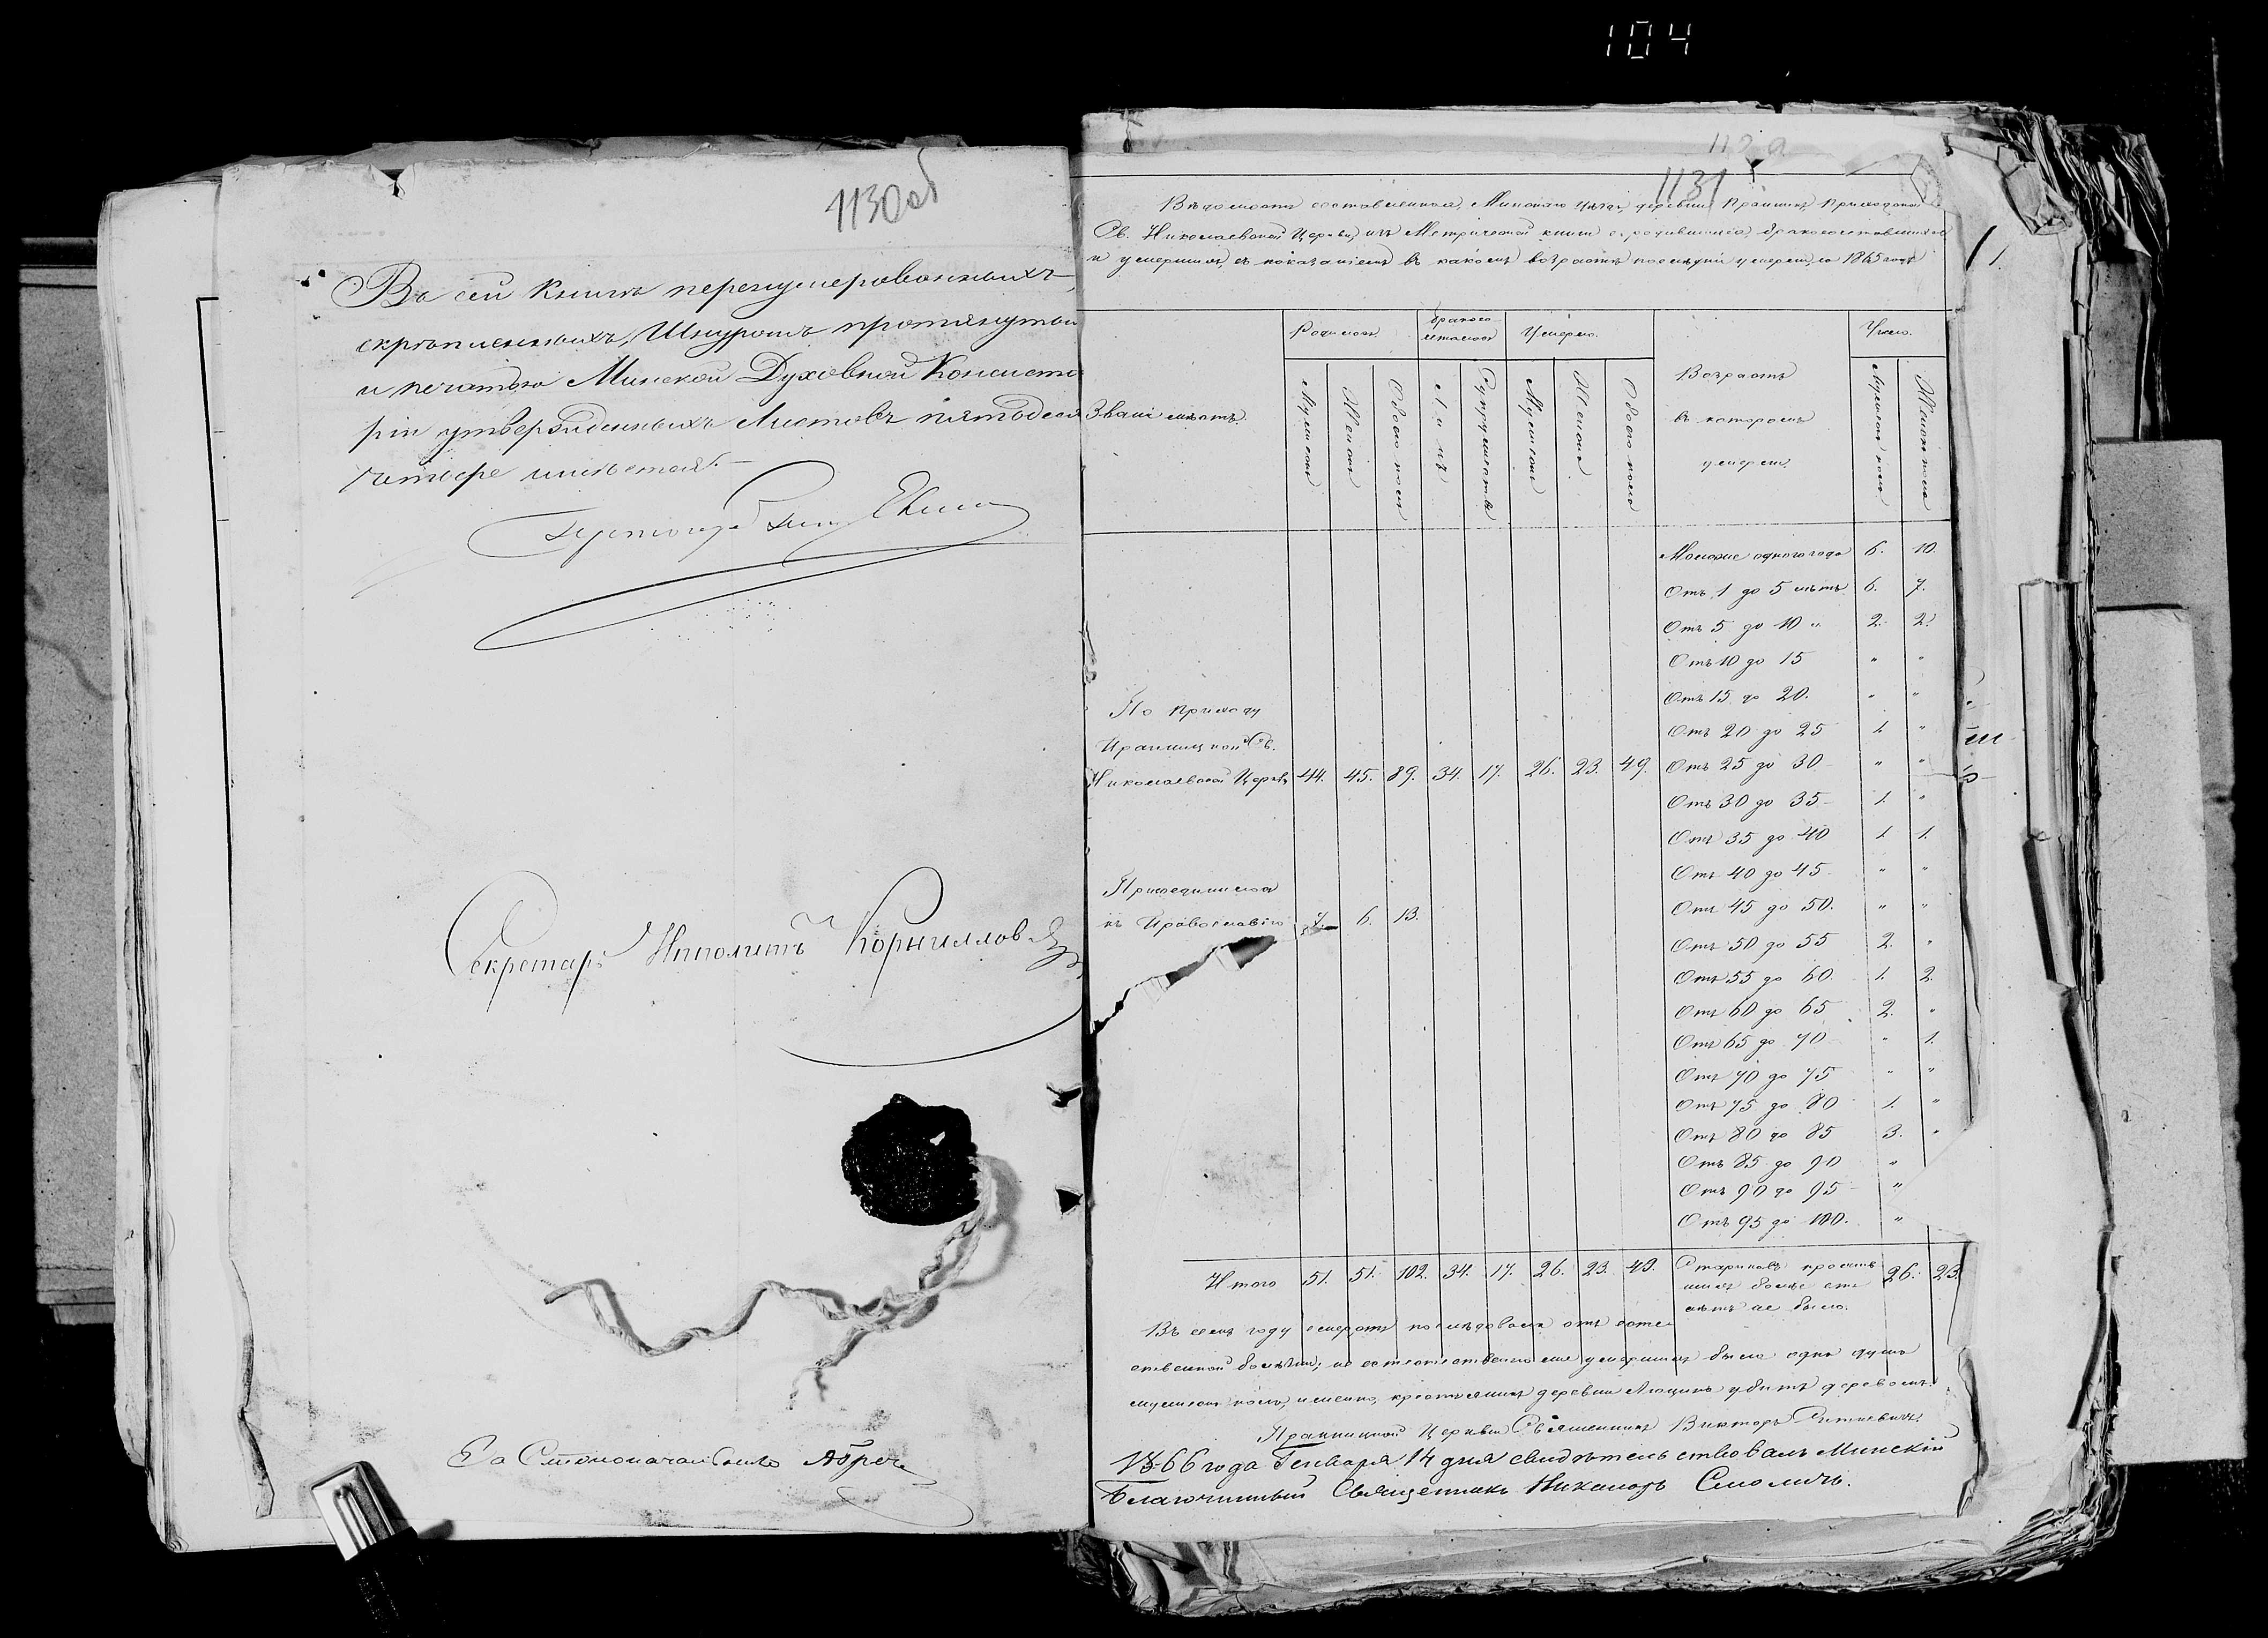 104
1130 об
Въ сей Книгѣ перенумерованныхъ,
скрѣпленныхъ, Шнуромъ протянутыхъ
и печатью Минской Духовной Консисто
ріи утвержденныхъ Листовъ пятьдеся
четыре имѣется.
Секретарь Ипполитъ Корниллов
За Столоначальника
1131
1.
Вѣдомость составленная, Минскаго уѣзда, деревни Приходской
Св. Николаевской Церкви, изъ Метрической книги о родившихся, бракосочетавшихся
и умершихъ, съ показаніемъ въ какомъ возрастѣ послѣдніе умерли, за 1865 годъ
Званіе мѣстъ.
Родилось.
Бракосо-
четалось
Умерло.
Возрастъ
въ которомъ
умерли.
Число.
Мужеска
Женска
Обоего пола
Лицъ
Супружествъ
Мужеска
Женска
Обоего пола
Мужеска пола
Женска пола
Моложе одного года 6. 10.
Отъ 1 до 5 лѣтъ 6. 7.
Отъ 5 до 10 " 2. 2.
Отъ 10 до 15 " "
Отъ 15 до 20. " "
Отъ 20 до 25 1. "
Отъ 25 до 30 " "
Отъ 30 до 35 1. "
Отъ 35 до 40 1. 1.
Отъ 40 до 45 " "
Отъ 45 до 50. " "
Отъ 50 до 55 2. "
Отъ 55 до 60 1. 2.
Отъ 60 до 65 2. "
Отъ 65 до 70 " 1.
Отъ 70 до 75 " "
Отъ 75 до 80 1. "
Отъ 80 до 85 3. "
Отъ 85 до 90 "
Отъ 90 до 95 "
Отъ 95 до 100. "
По приходу
Св.
Николаевской Церкви 44. 45. 89. 34. 17. 26. 23. 49.
Присоединилось
къ Православію 7. 6. 13.
Итого 51. 51. 102. 34. 17. 26. 23. 49.
Стариковъ прожив
шихъ болѣе ста
лѣтъ не было.
26. 23.
Въ семъ году смерть послѣдовала отъ есте
ственной болѣзни; не естественною же умершихъ была одна душа
мужеска пола, именно, крестьянинъ деревни убитъ деревомъ.
Церкви Священникъ Викторъ
1866 года Генваря 14 дня свидѣтельствовалъ Минскій
Благочинный Священникъ Никаноръ Смоличъ.